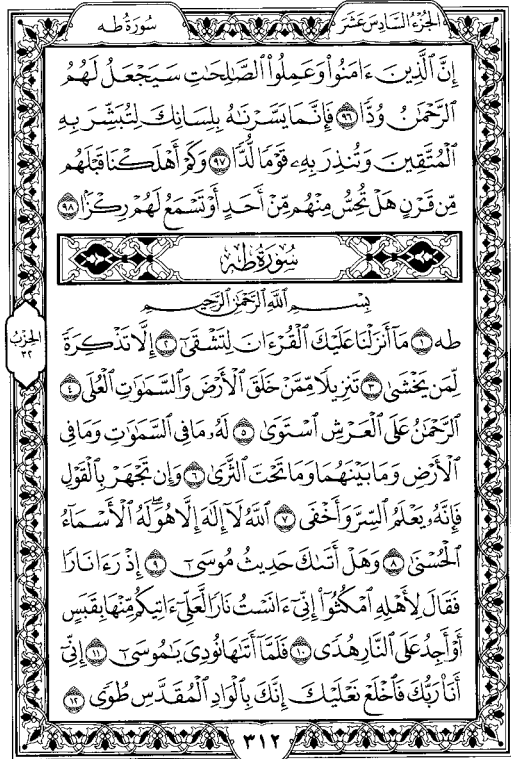 الجُزْءُ السَّادِسَ عَشَرَ
سُورَةُ طه
إِنَّ ٱلَّذِينَ ءَامَنُوا۟ وَعَمِلُوا۟ ٱلصَّـٰلِحَـٰتِ سَيَجْعَلُ لَهُمُ
ٱلرَّحْمَـٰنُ وُدًّا ٩٦ فَإِنَّمَا يَسَّرْنَـٰهُ بِلِسَانِكَ لِتُبَشِّرَ بِهِ
ٱلْمُتَّقِينَ وَتُنذِرَ بِهِۦ قَوْمًا لُّدًّا ٩٧ وَكَمْ أَهْلَكْنَا قَبْلَهُم
مِّن قَرْنٍ هَلْ تُحِسُّ مِنْهُم مِّنْ أَحَدٍ أَوْ تَسْمَعُ لَهُمْ رِكْزًۢا ٩٨
سُورَةُ طه
بِسْمِ ٱللَّهِ ٱلرَّحْمَـٰنِ ٱلرَّحِيمِ
طه ١ مَآ أَنزَلْنَا عَلَيْكَ ٱلْقُرْءَانَ لِتَشْقَىٰٓ ٢ إِلَّا تَذْكِرَةً
لِّمَن يَخْشَىٰ ٣ تَنزِيلًا مِّمَّنْ خَلَقَ ٱلْأَرْضَ وَٱلسَّمَـٰوَٰتِ ٱلْعُلَى ٤
ٱلرَّحْمَـٰنُ عَلَى ٱلْعَرْشِ ٱسْتَوَىٰ ٥ لَهُۥ مَا فِى ٱلسَّمَـٰوَٰتِ وَمَا فِى
ٱلْأَرْضِ وَمَا بَيْنَهُمَا وَمَا تَحْتَ ٱلثَّرَىٰ ٦ وَإِن تَجْهَرْ بِٱلْقَوْلِ
فَإِنَّهُۥ يَعْلَمُ ٱلسِّرَّ وَأَخْفَى ٧ ٱللَّهُ لَآ إِلَـٰهَ إِلَّا هُوَ ۖ لَهُ ٱلْأَسْمَآءُ
ٱلْحُسْنَىٰ ٨ وَهَلْ أَتَىٰكَ حَدِيثُ مُوسَىٰٓ ٩ إِذْ رَءَا نَارًا
فَقَالَ لِأَهْلِهِ ٱمْكُثُوٓا۟ إِنِّىٓ ءَانَسْتُ نَارًا لَّعَلِّىٓ ءَاتِيكُم مِّنْهَا بِقَبَسٍ
أَوْ أَجِدُ عَلَى ٱلنَّارِ هُدًى ١٠ فَلَمَّآ أَتَىٰهَا نُودِىَ يَـٰمُوسَىٰٓ ١١ إِنِّىٓ
أَنَا۠ رَبُّكَ فَٱخْلَعْ نَعْلَيْكَ إِنَّكَ بِٱلْوَادِ ٱلْمُقَدَّسِ طُوًى ١٢
الحِزْبُ
٣٢
٣١٢